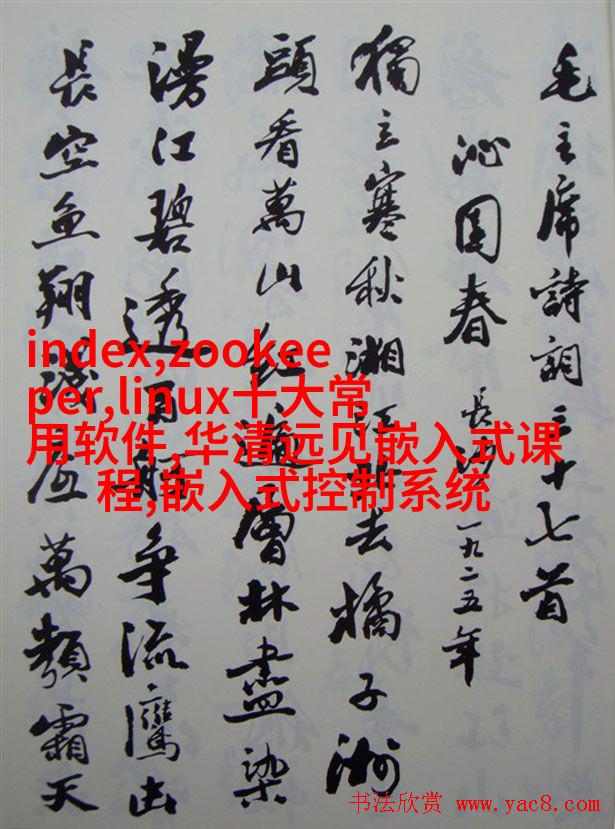 毛主席詩詞三十七首
沁园春 長沙 一九二五年
獨立寒秋湘江北去橘子洲
頭看萬山红遍層林盡染
漫江碧透百舸争流鷹击
長空鱼翔浅底萬類霜天
index,zookee
per,linux十大常
用软件,华清远见嵌入式课
程,嵌入式控制系统
书法欣赏 www.yac8.com